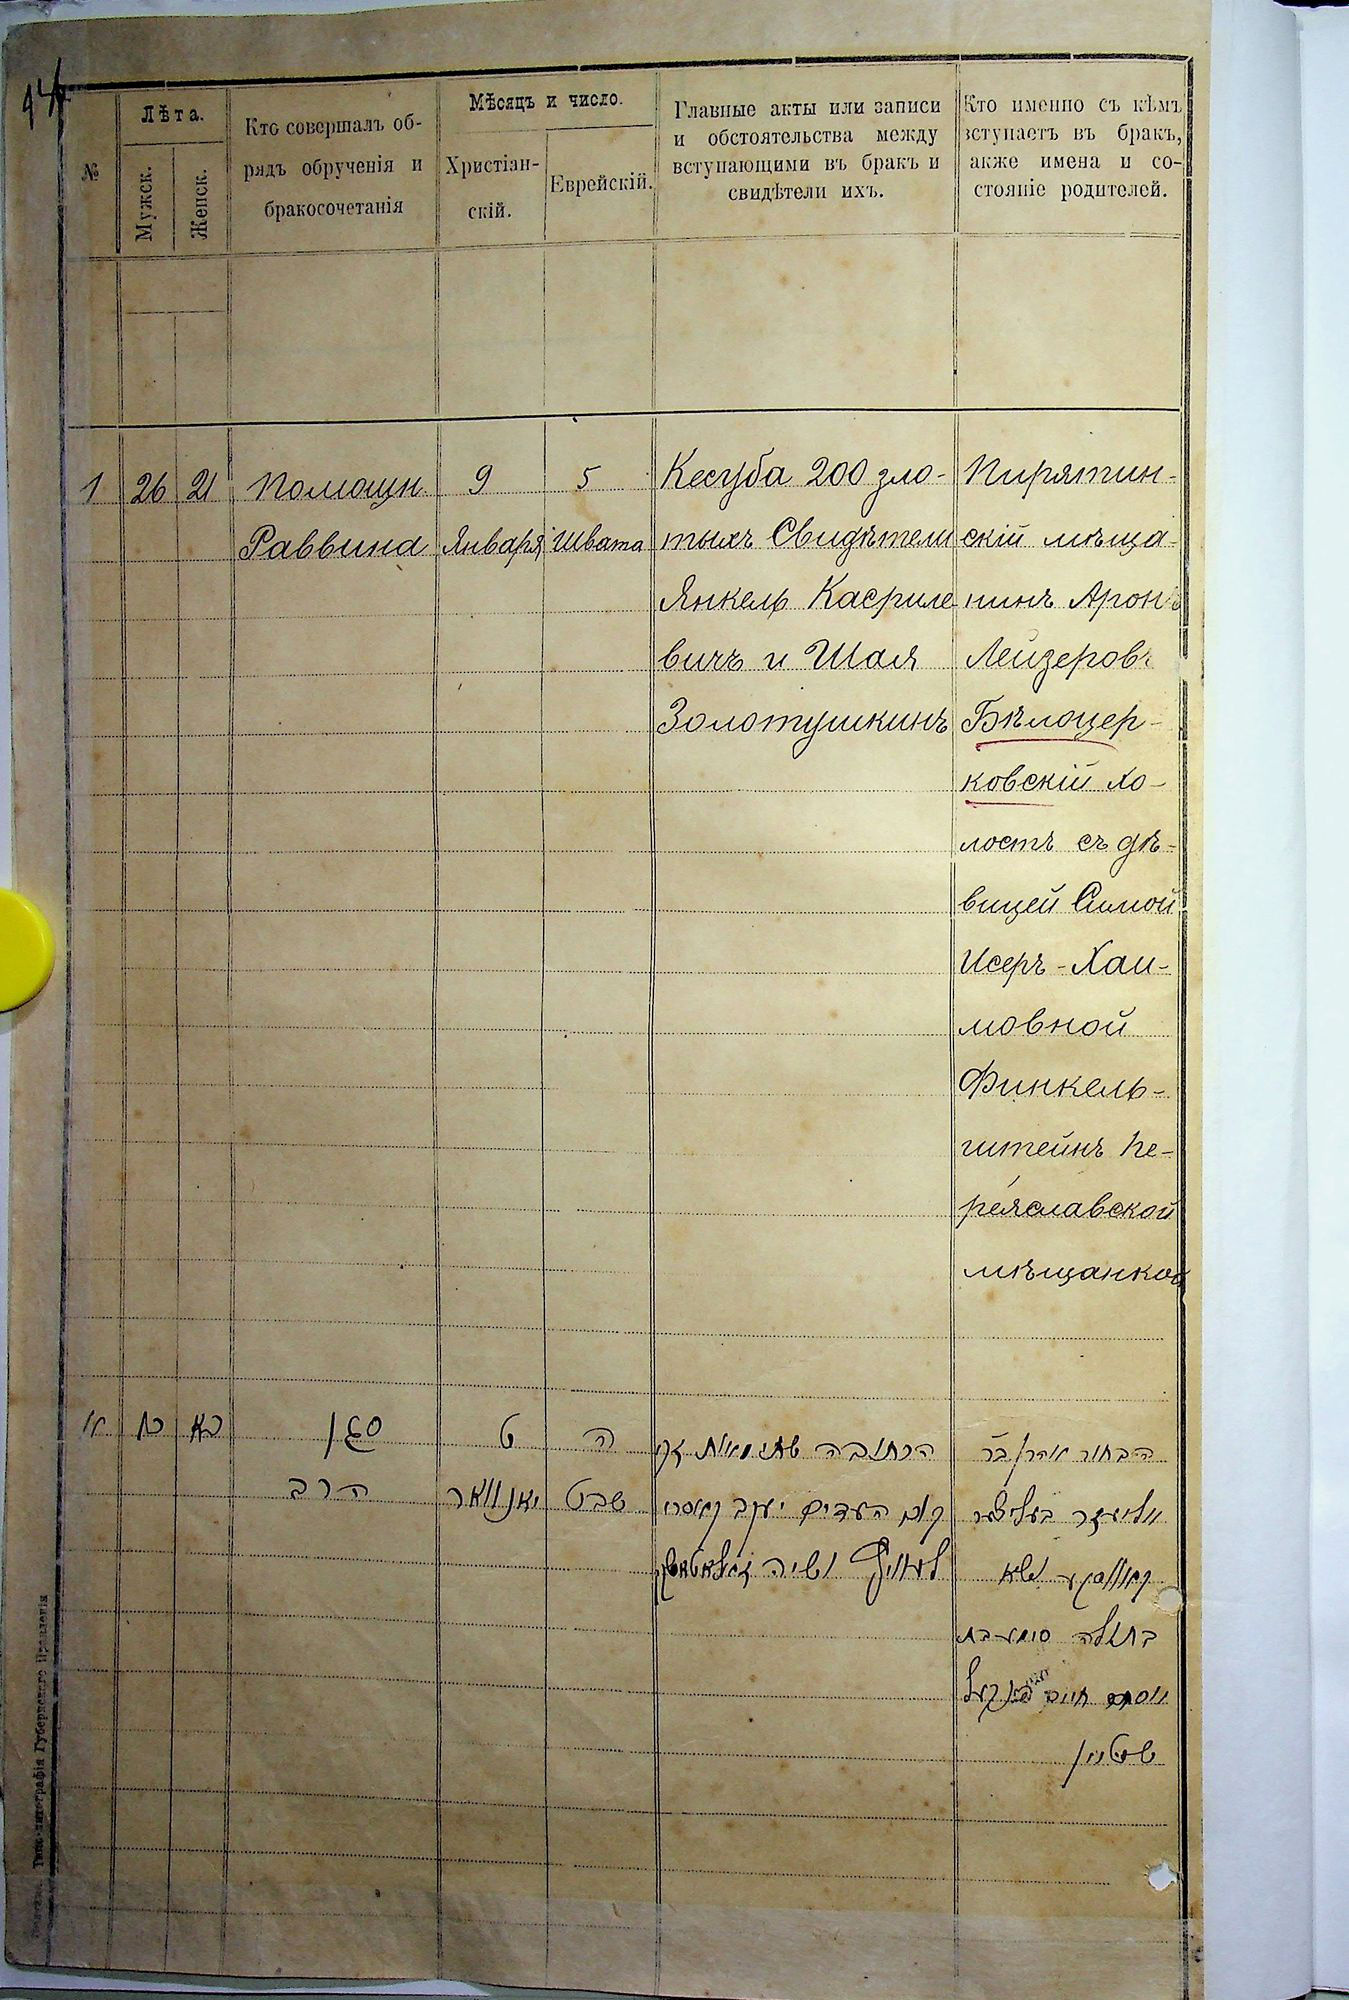 №
Лѣта.
Мужск.
Женск.
Кто совершалъ об-
рядъ обрученія и
бракосочетанія
Мѣсяцъ и число.
Христіан-
скій.
Еврейскій.
Главные акты или записи
и обстоятельства между
вступающими въ бракъ и
свидѣтели ихъ.
Кто именно съ кѣмъ
вступаетъ въ бракъ,
акже имена и со-
стояніе родителей.
1
26
21
Помощн.
Раввина
9
Января
5
Швата
Кесуба 200 зло-
тыхъ Свидѣтели
Янкель Касриле
вичъ и Шая
Золотушкинъ
Пирятин-
скій мѣща-
нинъ Арон
Лейзеровъ
Бѣлоцер-
ковскій хо-
лостъ съ дѣ-
вицей Симой
Исеръ-Хаи-
мовной
Финкель-
штейнъ Пе-
реяславской
мѣщанкой
א
כו
כא
סגן
הרב
ט
יאנוואר
ה
שבט
הכתובה מאתים זק
העדים יעקב
הבחור אהרן בר
אליעזר
בתולה סימא בת
חיים פינקעל
שטיין
Типо-литографія Губернскаго Правленія